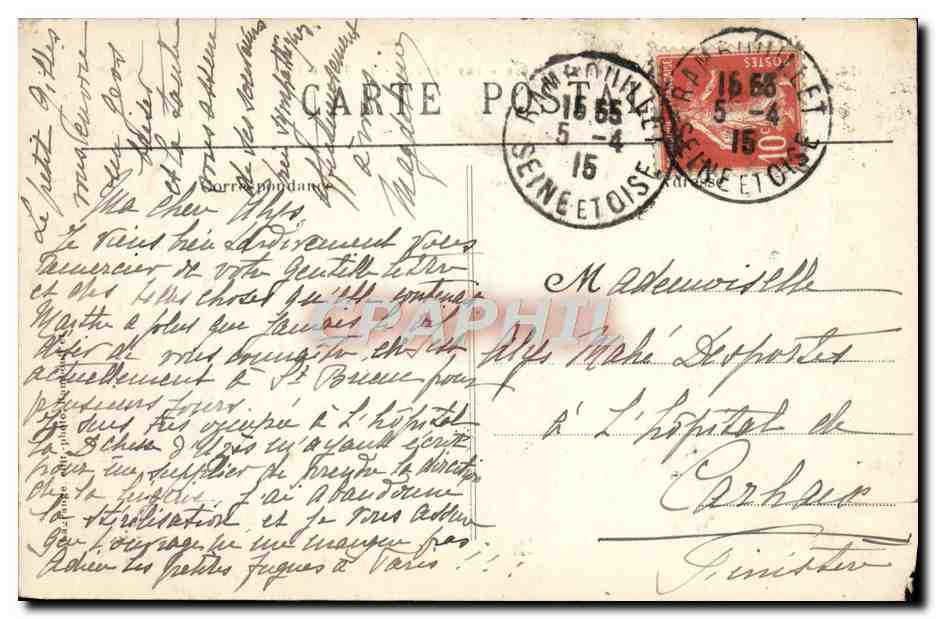 CARTE POSTALE
Correspondance
Adresse
RAMBOUILLET
16 55
5 -4
15
SEINE ET OISE
RAMBOUILLET
16 55
5 -4
15
SEINE ET OISE
POSTES
10c
Ma chère Alys
Je viens bien tardivement vous
remercier de votre gentille lettre
et des belles choses qu'elle contenait
Marthe a plus que jamais le
désir de vous connaître, elle est
actuellement à St Brieuc pour
plusieurs jours
Je suis très occupée à l'hôpital
la Dchesse d'Uzès m'ayant écrit
pour me supplier de prendre la direction
de la lingerie j'ai abandonné
la stérilisation et je vous assure
que l'ouvrage ne me manque pas.
Adieu les petites fugues à Paris !!!
Le petit Gilles
vous envoie
un gros
et la tante
vous assure
de ses
sympathiques
amis
Mademoiselle
Alys Mahé Desportes
à l'hôpital de
Carhaix
Finistère
CPAPHIL